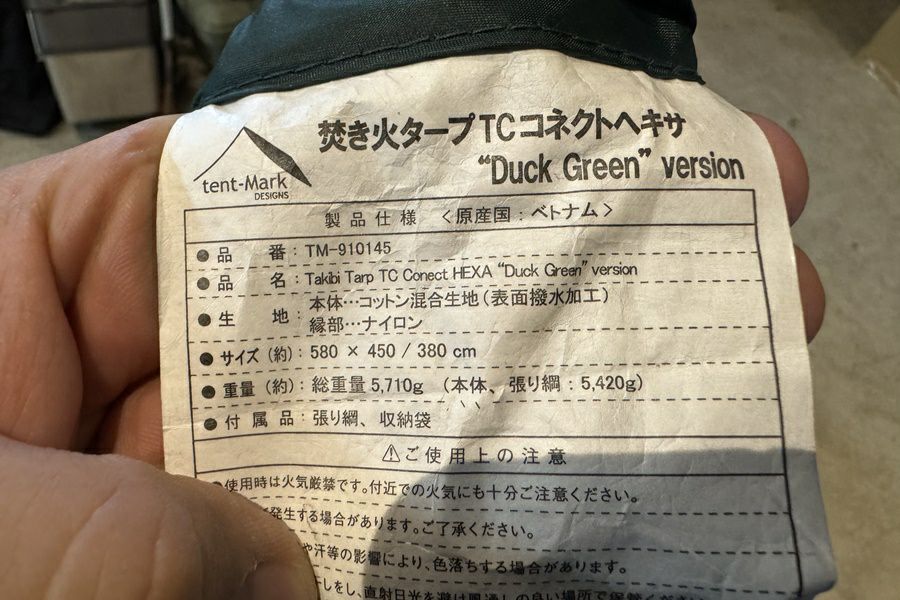 焚き火タープTCコネクトヘキサ
"Duck Green" version
tent-Mark
DESIGNS
製品仕様 〈原産国：ベトナム〉
●品番：TM-910145
●品名：Takibi Tarp TC Conect HEXA "Duck Green" version
●生地：本体…コットン混合生地(表面撥水加工)
縁部…ナイロン
●サイズ(約)：580 × 450 / 380 cm
●重量(約)：総重量 5,710g (本体、張り綱：5,420g)
●付属品：張り綱、収納袋
⚠ご使用上の注意
●使用時は火気厳禁です。付近での火気にも十分ご注意ください。
発生する場合があります。ご了承ください。
や汗等の影響により、色落ちする場合があります。
をし、直射日光を避け風通しの良い場所で保管ください